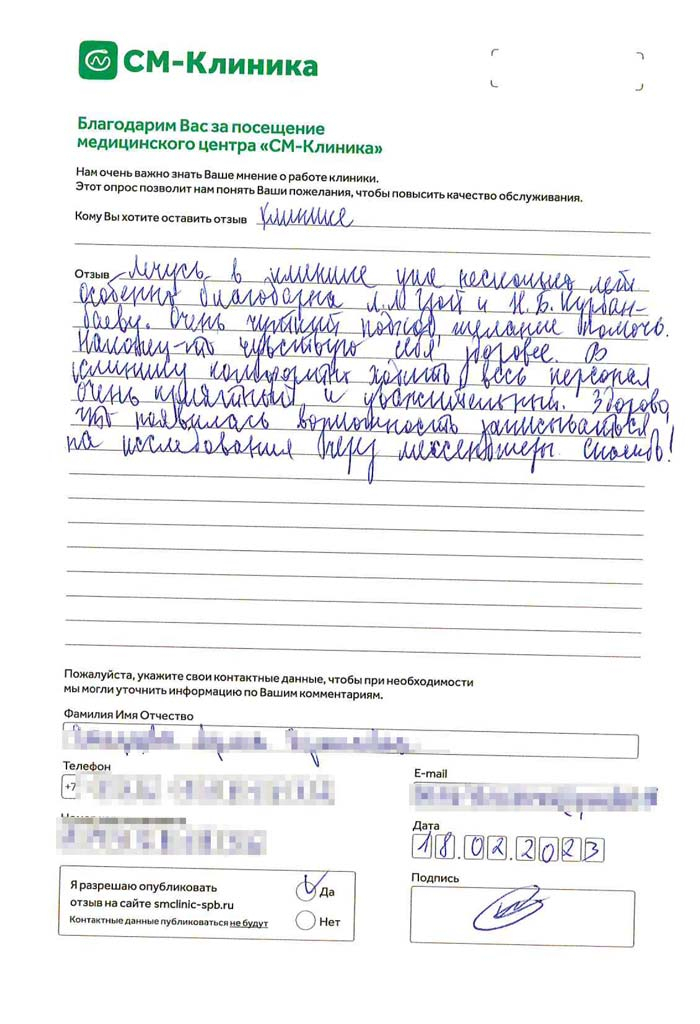 СМ-Клиника
Благодарим Вас за посещение
медицинского центра «СМ-Клиника»
Нам очень важно знать Ваше мнение о работе клиники.
Этот опрос позволит нам понять Ваши пожелания, чтобы повысить качество обслуживания.
Кому Вы хотите оставить отзыв клинике
Отзыв Лечусь в клинике уже несколько лет,
особенно благодарна Л.М Цой и Н.Б. Курбан-
баеву. Очень чуткий подход, желание помочь.
Наконец-то чувствую себя здоровее. В
клинику комфортно ходить, весь персонал
очень приятный и уважительный. Здорово,
что появилась возможность записываться
на исследования через мессенджеры. Спасибо!
Пожалуйста, укажите свои контактные данные, чтобы при необходимости
мы могли уточнить информацию по Вашим комментариям.
Фамилия Имя Отчество
Телефон
+7
E-mail
Дата
18.02.2023
Я разрешаю опубликовать
отзыв на сайте smclinic-spb.ru
Контактные данные публиковаться не будут
Да
Нет
Подпись